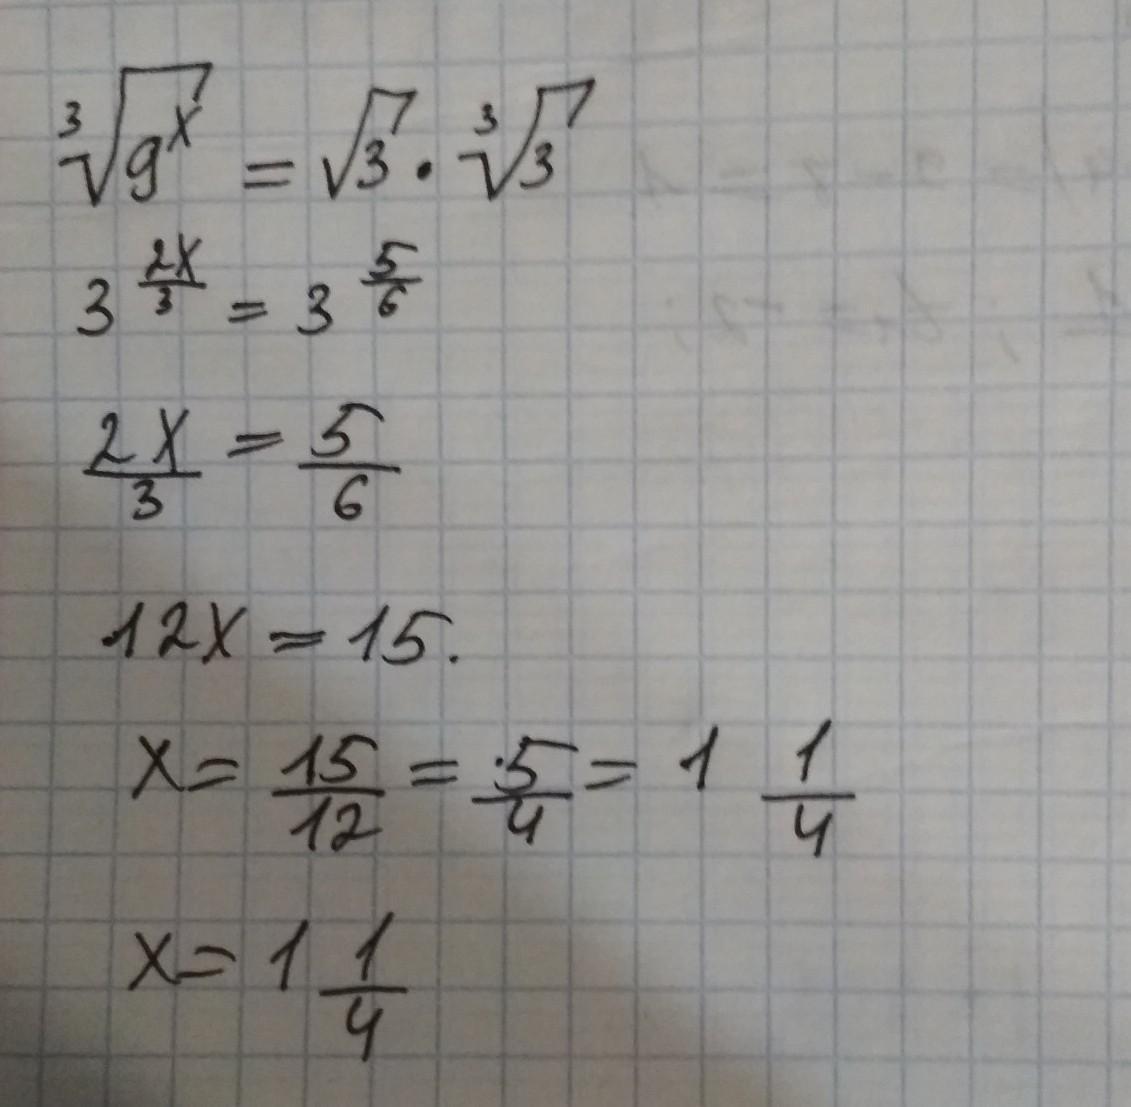 ∛9ˣ = √3 · ∛3
3^(2x/3) = 3^(5/6)
2x/3 = 5/6
12x = 15.
x = 15/12 = 5/4 = 1 1/4
x = 1 1/4